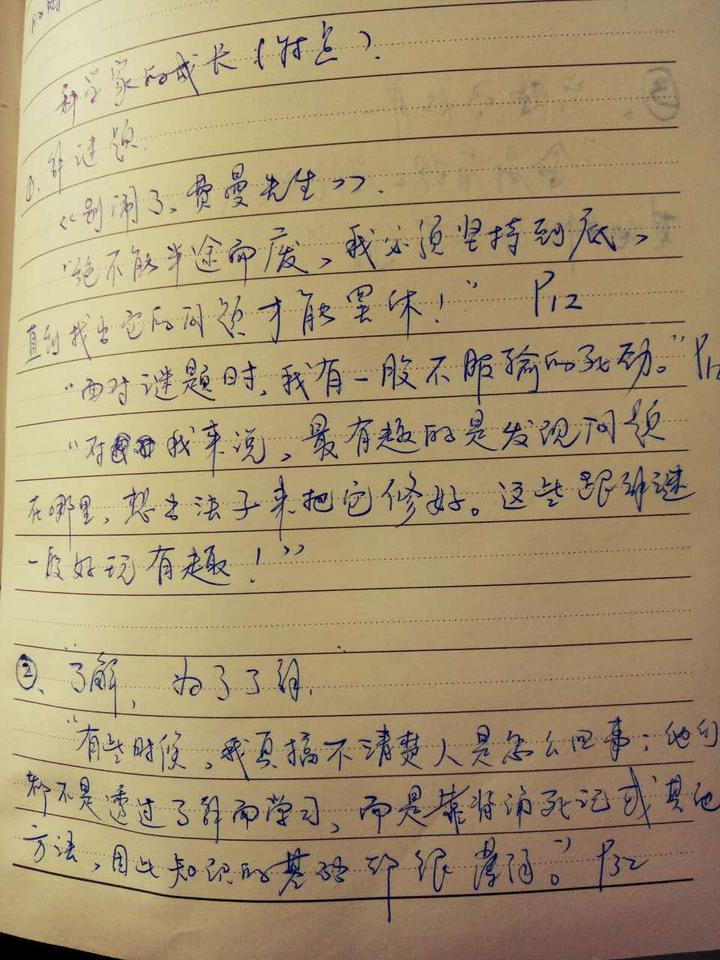 科学家的成长（特点）.
①. 解谜题.
《别闹了、费曼先生》.
“绝不能半途而废、我必须坚持到底、
直到找出它的问题才能罢休！” P12
“面对谜题时、我有一股不服输的死劲。” P12
“对我来说、最有趣的是发现问题
在哪里、想出法子来把它修好。这些跟解谜
一般好玩有趣！”
②、了解，为了了解.
“有些时候、我真搞不清楚人是怎么回事：他们
都不是透过了解而学习、而是靠背诵死记或其他
方法、因此知识的基础却很薄弱。” P32